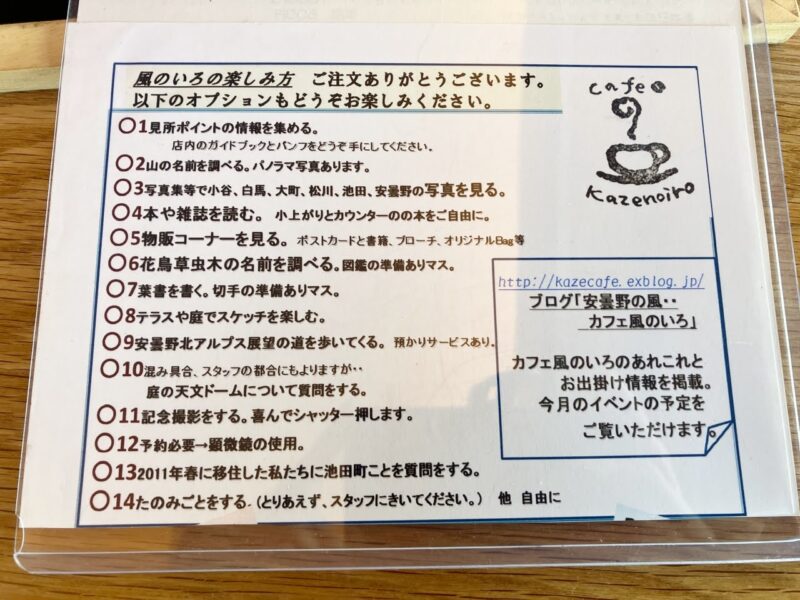 風のいろの楽しみ方 ご注文ありがとうございます。
以下のオプションもどうぞお楽しみください。
〇1見所ポイントの情報を集める。
店内のガイドブックとパンフをどうぞ手にしてください。
〇2山の名前を調べる。パノラマ写真あります。
〇3写真集等で小谷、白馬、大町、松川、池田、安曇野の写真を見る。
〇4本や雑誌を読む。 小上がりとカウンターのの本をご自由に。
〇5物販コーナーを見る。 ポストカードと書籍、ブローチ、オリジナルBag等
〇6花鳥草虫木の名前を調べる。図鑑の準備ありマス。
〇7葉書を書く。切手の準備ありマス。
〇8テラスや庭でスケッチを楽しむ。
〇9安曇野北アルプス展望の道を歩いてくる。 預かりサービスあり。
〇10混み具合、スタッフの都合にもよりますが‥
庭の天文ドームについて質問をする。
〇11記念撮影をする。喜んでシャッター押します。
〇12予約必要→顕微鏡の使用。
〇132011年春に移住した私たちに池田町ことを質問をする。
〇14たのみごとをする。(とりあえず、スタッフにきいてください。) 他 自由に
cafe
kazenoiro
http://kazecafe.exblog.jp/
ブログ「安曇野の風‥
カフェ風のいろ」
カフェ風のいろのあれこれと
お出掛け情報を掲載。
今月のイベントの予定を
ご覧いただけます。